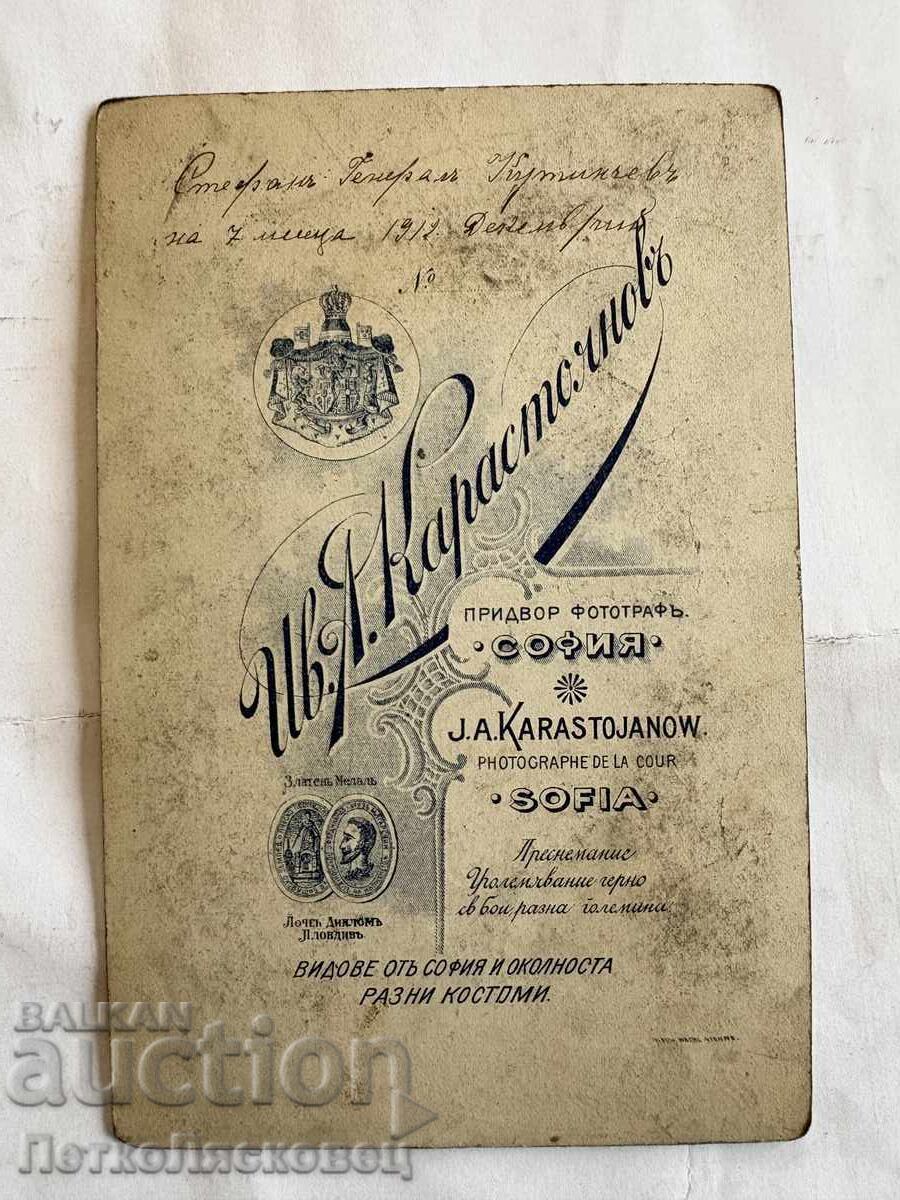 Стефанъ Генералъ Кутинчевъ
на 7 месеца 1912 Декемврий
№
Ив. А. Карастояновъ
ПРИДВОР ФОТОТРАФЪ.
• СОФИЯ •
J.A. KARASTOJANOW.
PHOTOGRAPHE DE LA COUR
• SOFIA •
Златенъ Медалъ
Почен Дипломъ
Пловдивъ
Преснемание
Уголемявание черно
св бои, разна големина.
ВИДОВЕ ОТЪ СОФИЯ И ОКОЛНОСТА
РАЗНИ КОСТЮМИ.
BALKAN
auction
ПеткоЛясковец